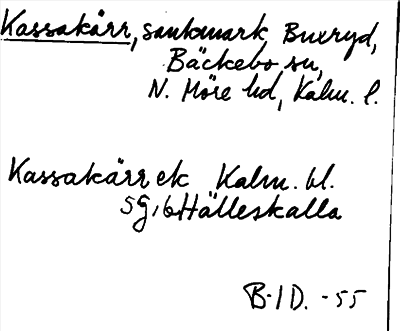 Kassakärr, sankmark Buxryd,
Bäckebo sn,
N. Möre hd, Kalm. l.
Kassakärr ek Kalm. bl.
5G, 6 Hälleskalla
B-ID. -55